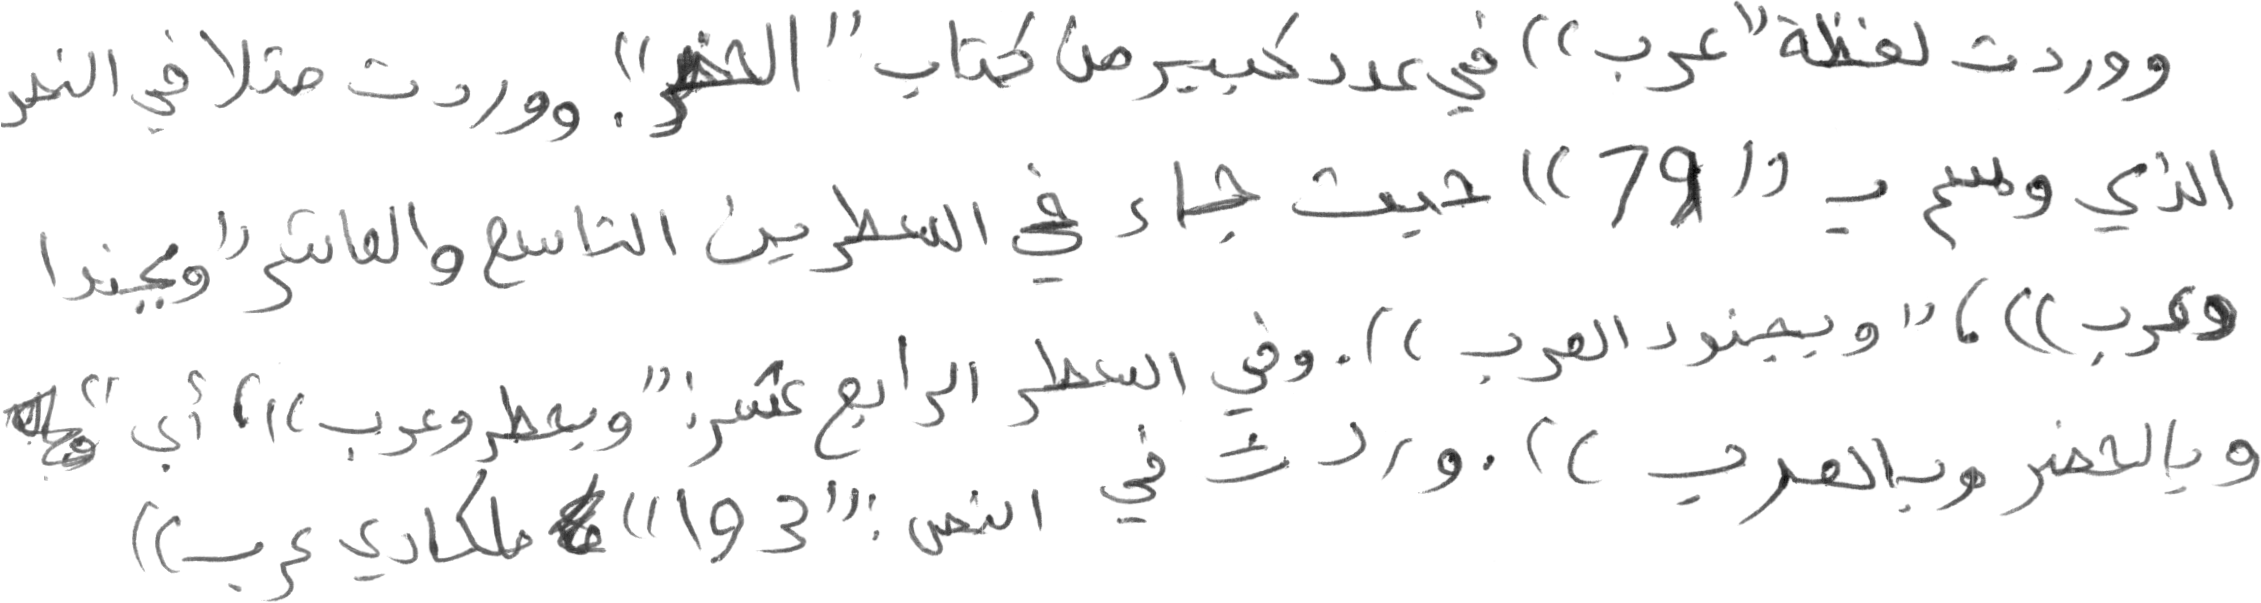 ووردت لفظة "عرب" في عدد كبير من كتاب "الحضر". ووردت مثلا في النص
الذي وسم بـ "79" حيث جاء في السطرين التاسع والعاشر "وبجندا
وعرب"، "وبجنود العرب". وفي السطر الرابع عشر: "وبحطر وعرب"، أي "
وبالحضر وبالعرب". وردت في النص: "193" ملكادي عرب"